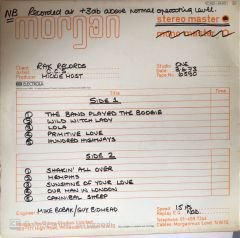 NB Recorded at +3db above normal operating level.
morgan
stereo master
Client RAK RECORDS
Artist C.C.S.
Producer MICKIE MOST
Studio ONE
Date 3.4.73
Tape No 6590
ELECTROLA
Title
Time
SIDE 1
THE BAND PLAYED THE BOOGIE
WILD WITCH LADY
LOLA
PRIMITIVE LOVE
HUNDRED HIGHWAYS
SIDE 2
SHAKIN' ALL OVER
MEMPHIS
SUNSHINE OF YOUR LOVE
OUR MAN IN LONDON
CANNIBAL SHEEP
Engineer MIKE BOBAK/GUY BIDMEAD
Speed 15 IPS
Replay E.Q. NAB.
Morgan Studios Limited